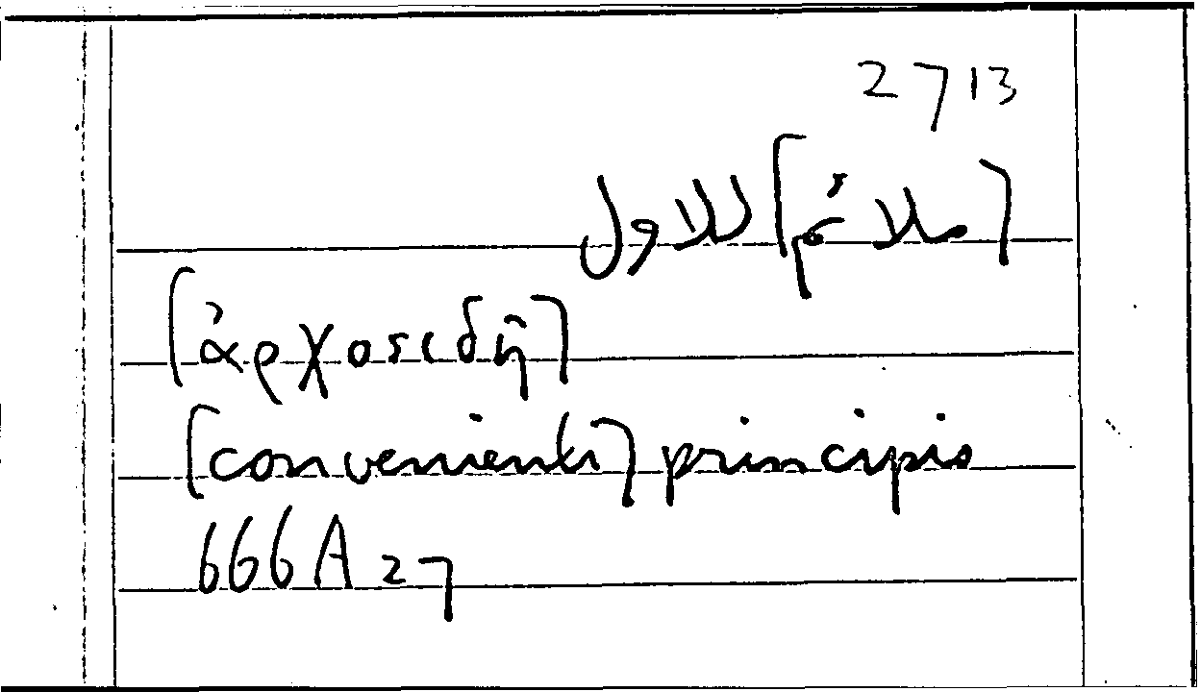 2713
[ملائم] للاول
[ἀρχοειδῆ]
[convenienti] principio
666A27